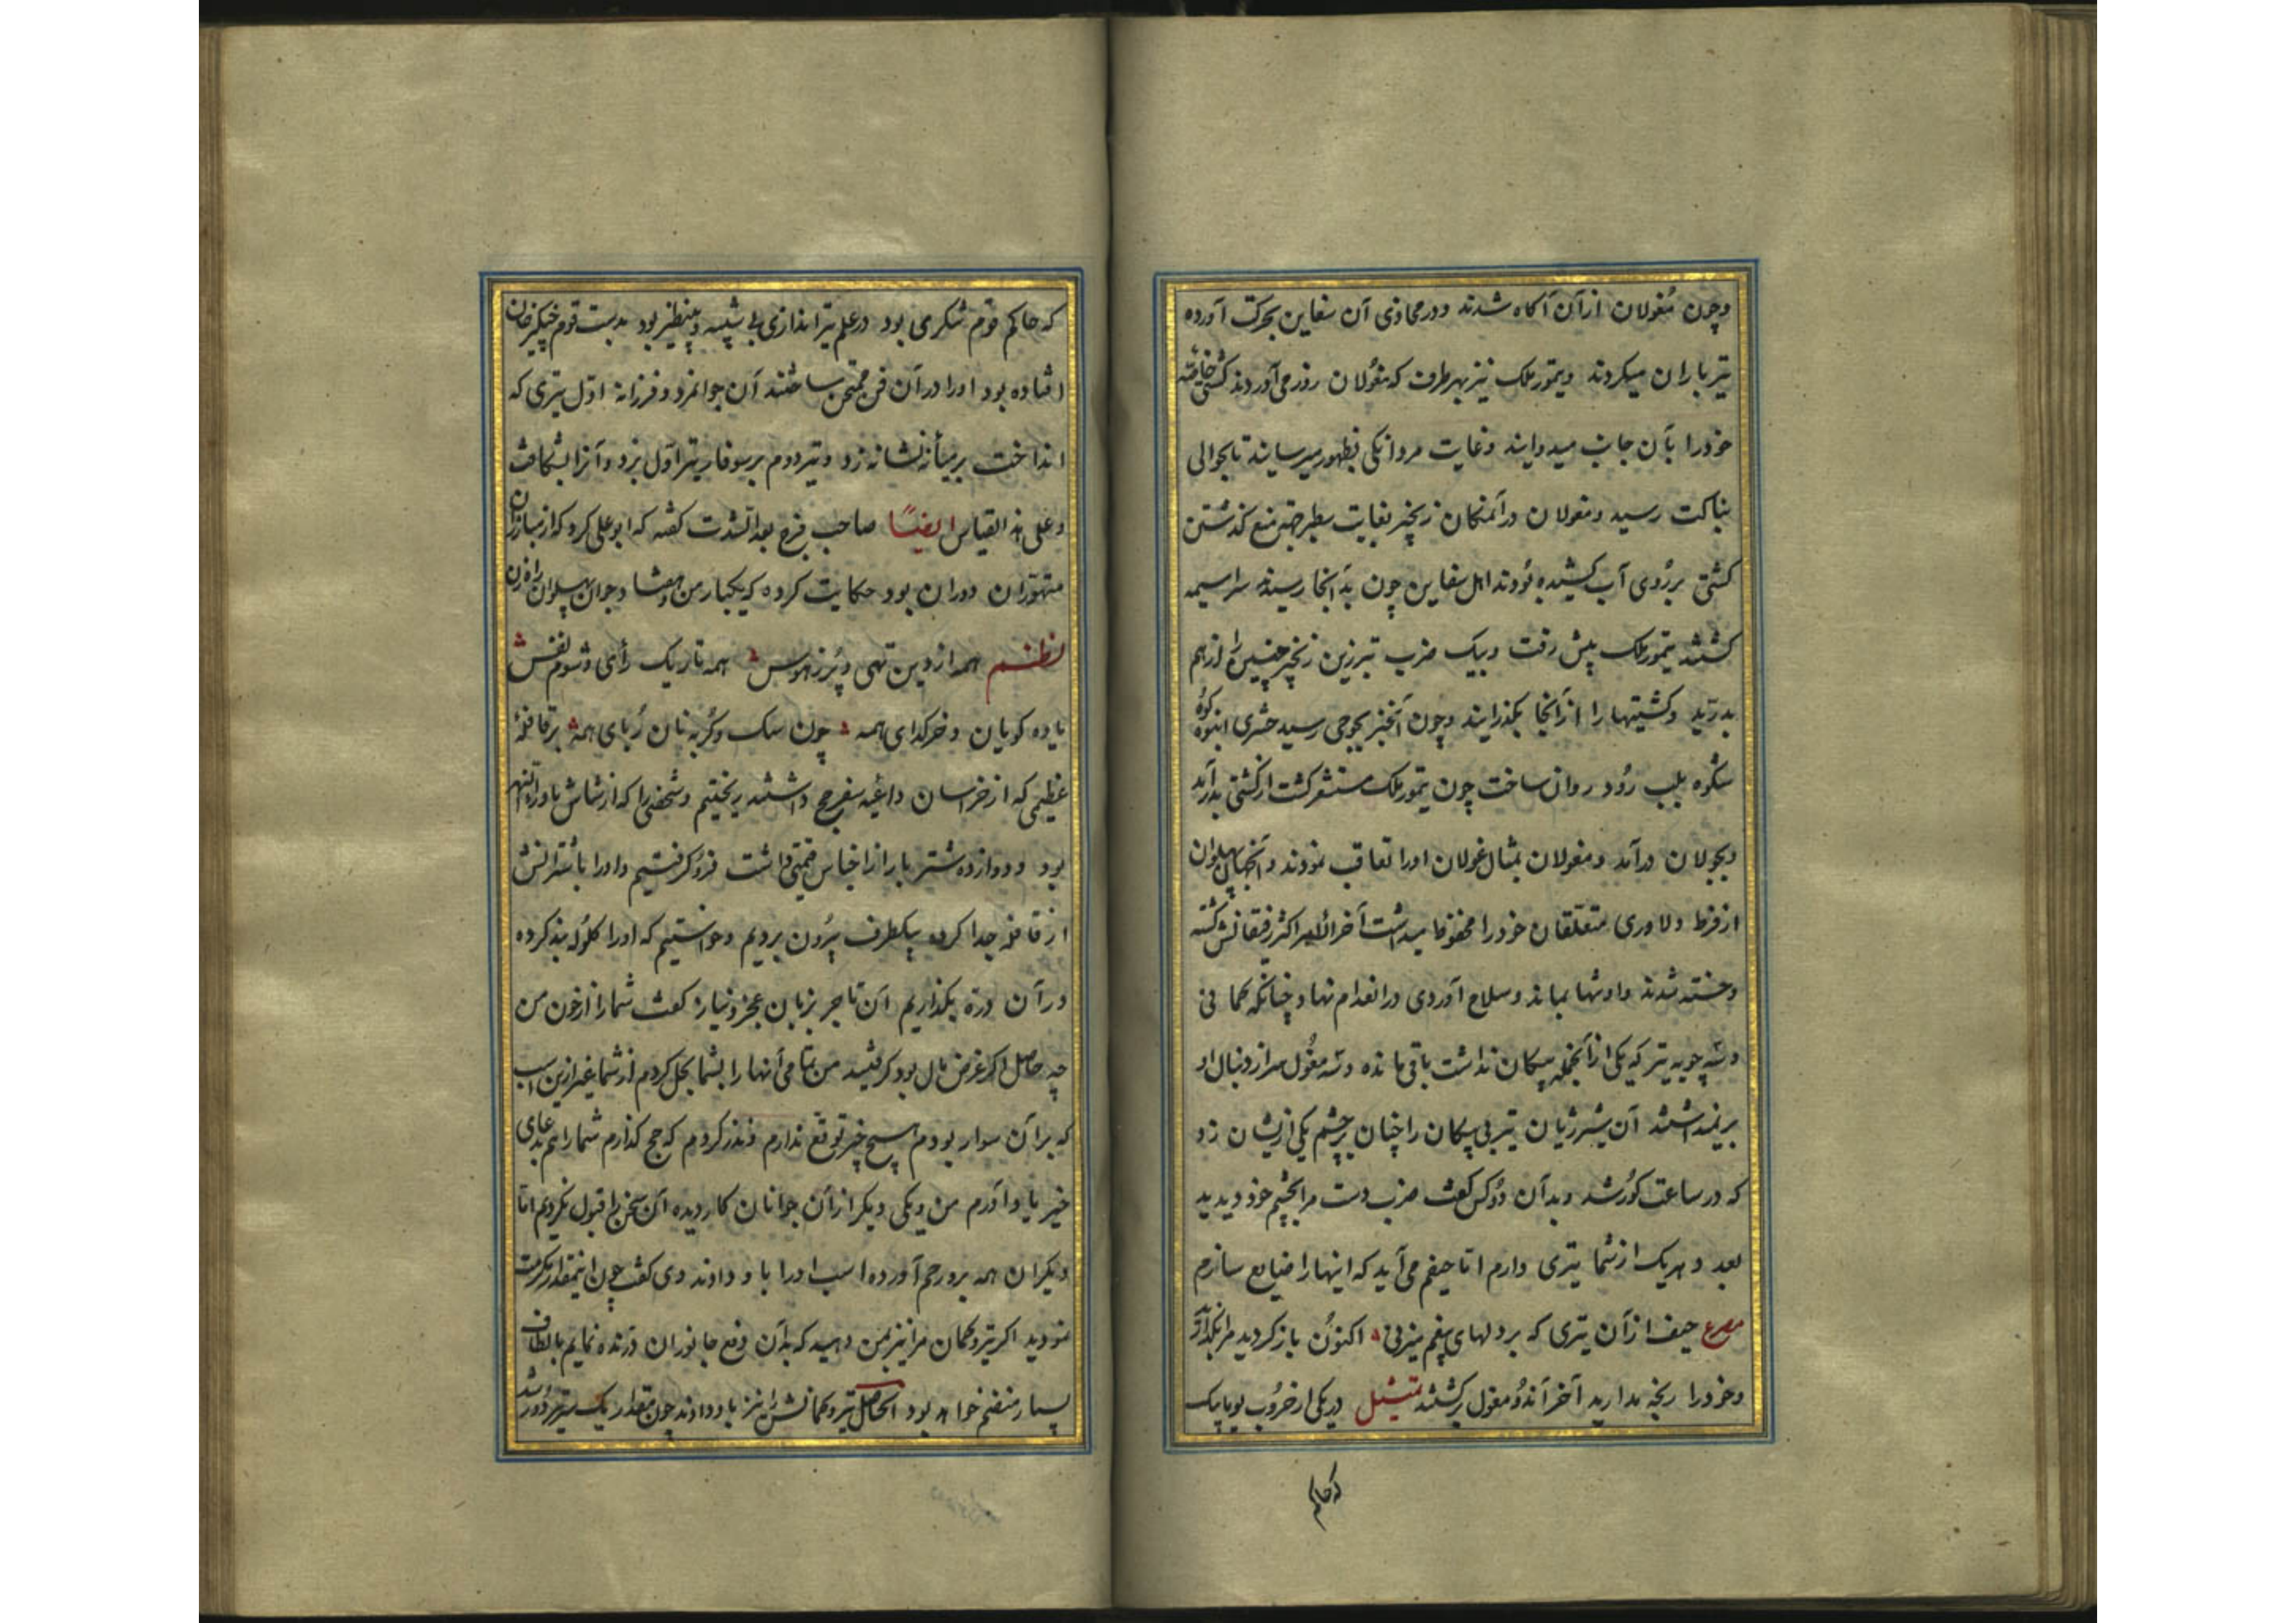 وچون مُغولان ازآن آگاه شدند ودر محاذی آن سفاین بحرکت آورده
تیرباران میکردند وتیمور ملک نیز بهر طرف که مغولان زور می‌آوردند کشتی خاصّهٔ
خود را بآن جانب میدوانید وغایت مردانگی بظهور میرسانید تا بحوالی
بناکت رسید ومغولان درآنمکان زنجیر بغایت سطبر جهة منع گذشتن
کشتی برروی آب کشیده بُودند اهل سفاین چون بدآنجا رسیدند سراسیمه
گشتند تیمور ملک پیش رفت وبیک ضرب تبرزین زنجیر چنین را از هم
بدرّید وکشتیها را ازآنجا بگذرانید وچون آنخبر بجوجی رسید حشری انبوه کوه
شکوه بلب رُود روان ساخت چون تیمور ملک مستشعر گشت از کشتی بدرآمد
وبجولان درآمد ومغولان بمثال غولان اورا تعاقب نمودند وآنجهان پهلوان
از فرط دلاوری متعلّقان خود را محفوظ میداشت آخرالامر اکثر رفیقانش کشته
وخسته شدند واو تنها بماند وسلاح آوردی در انعدام نهاد چنانکه کمانی
وسّه چوبه تیر که یکی ازآنجمله پیکان نداشت باقی مانده وسّه مغُول سر از دنبال او
برنمیداشتند آن شیر ژیان تیر بی پیکان را چنان برچشم یکی ازیشان زد
که در ساعت کُور شد وبدآن دُوکس گفت ضرب دست مرا بچشم خود دیدید
بعدد هریک از شما تیری دارم امّا حیفم می‌آید که اینها را ضایع سازم
مصرع حیف ازآن تیری که بر دلهای بیغم میزنی اکنُون باز گردید مرا بگذارید
وخود را رنجه مدارید آخر آندُو مغول برگشتند تمثیل در یکی از حرُوب لویاپیک
که حاکم
که حاکم قوم شکری بود درعلم تیراندازی بی شبیه وبینظیر بود بدست قوم چنگیزخان
افتاده بود اورا درآن فن ممتحن ساختند آن جوانمرد وفرزانه اوّل تیری که
انداخت برمیانهٔ نشانه زد وتیر دوم برسوفار تیر اوّل بزد وآنرا بشکافت
وعلی هذا القیاس ایضًا صاحب فرج بعدالشدت گفته که ابوعلی کرد که از مبارزان
متهوّران دوران بود حکایت کرده که یکبار من وهفتاد جوان پهلوان راه زن
نظم همه از دین تهی وپُر ز هوس همه تاریک رأی وشوم نفس
یاده گویان وخرگدای همه چون سگ وگربه نان رُبای همه برقافلهٔ
عظیمی که از خراسان داعیهٔ سفر حج داشتند ریختیم وشخصی را که از شاش ماوراءالنهر
بود ودوازده شتر بار از اجناس قیمتی داشت فروگرفتیم واورا باشترانش
از قافله جدا کرده بیکطرف بیرُون بردیم وخواستیم که اورا گلُوله بند کرده
درآن درّه بگذاریم آن تاجر بزبان عجز ونیاز گفت شما را از خون من
چه حاصل اگر غرض مال بود گرفتید من تمامی آنها را بشما بحل کردم از شما غیر ازین اسب
که برآن سوار بودم هیچ چیز توقع ندارم ونذر کردم که حج گذارم شما را هم بدعای
خیر یاد آورم من ویکی دیگر ازآن جوانان کاردیده آن سخن را قبول نکردیم امّا
دیگران همه برو رحم آورده اسب اورا باو دادند وی گفت چون اینمقدار مکرمت
نمودید اگر تیر وکمان مرا نیز بمن دهید که بدآن دفع جانوران درنده نمایم بالطاف
بسیار منضم خواهد بود الحاصل تیر وکمانش را نیز باو دادند چون مقدار یک تیر پرتاب دور شد